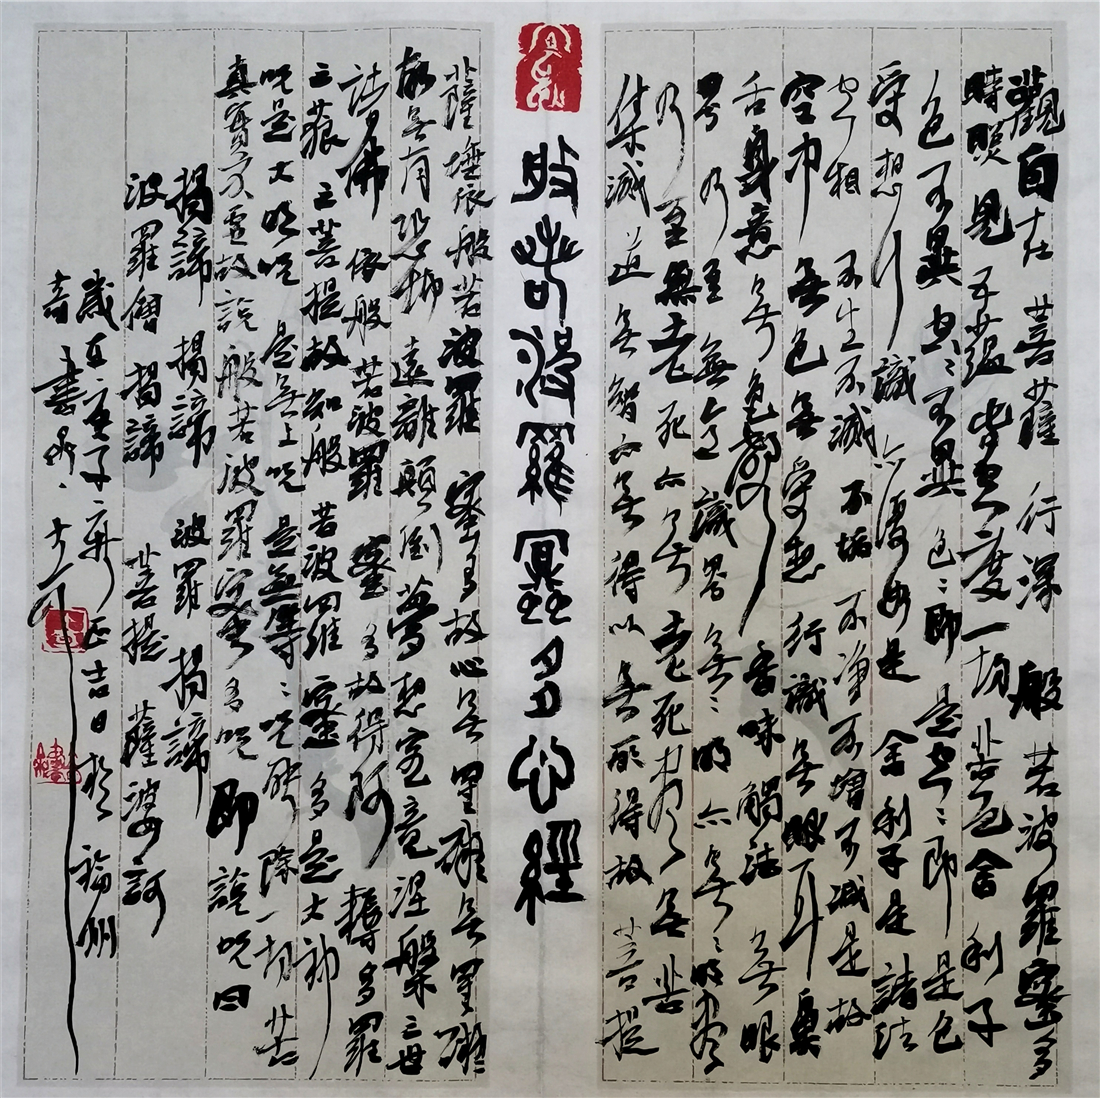 觀自在菩薩行深般若波羅蜜多
時照見五蘊皆空度一切苦厄舍利子
色不異空〻不異色〻即是空〻即是色
受想行識亦復如是舍利子是諸法
空相不生不滅不垢不淨不增不減是故
空中無色無受想行識無眼耳鼻
舌身意無色聲香味觸法無眼
界乃至無意識界無〻明亦無〻明盡
乃至無老死亦無老死盡無苦
集滅道無智亦無得以無所得故菩提
般若波羅蜜多心經
薩埵依般若波羅蜜多故心無罣礙無罣礙
故無有恐怖遠離顛倒夢想究竟涅槃三世
諸佛依般若波羅蜜多故得阿耨多羅
三藐三菩提故知般若波羅蜜多是大神
咒是大明咒是無上咒是無等〻咒能除一切苦
真實不虛故說般若波羅蜜多咒即說咒曰
揭諦揭諦波羅揭諦
波羅僧揭諦菩提薩婆訶
歲在庚子年正吉日於福州